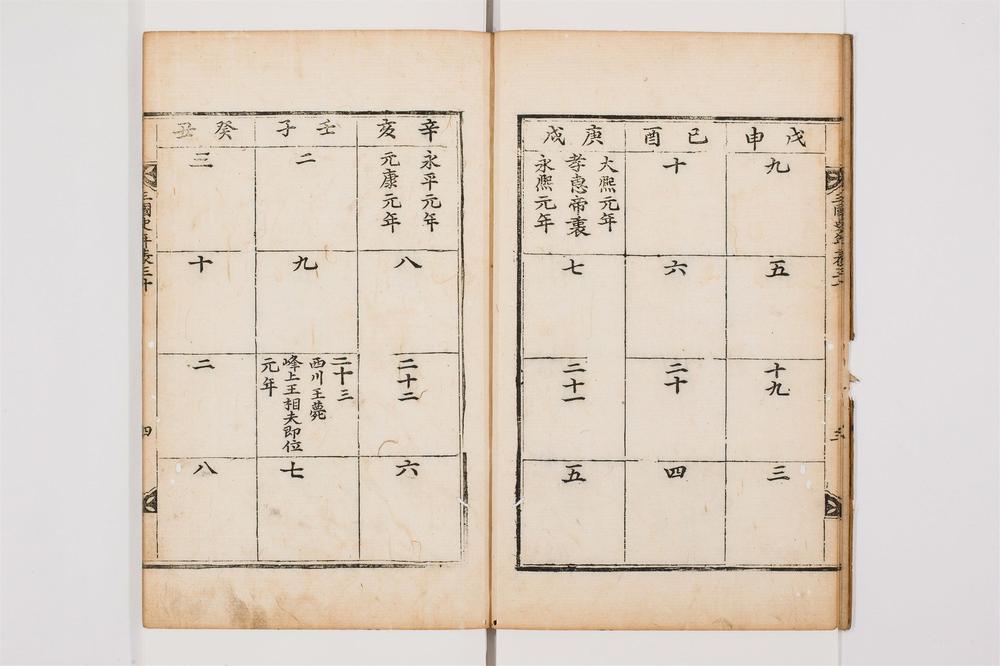 戊申
九
五
十九
三
己酉
十
六
二十
四
庚戌
大熙元年
孝惠帝衷
永熙元年
七
二十一
五
辛亥
永平元年
元康元年
八
二十二
六
壬子
二
九
二十三
西川王薨
峰上王相夫即位
元年
七
癸丑
三
十
二
八
三國史年表三十
四